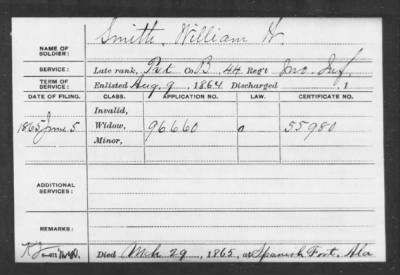 Smith, William H.
NAME OF SOLDIER:
SERVICE: Late rank, Pvt Co. B, 44 Reg't Mo. Inf.
TERM OF SERVICE: Enlisted Aug. 9, 1864 Discharged , 1
DATE OF FILING. CLASS. APPLICATION NO. LAW. CERTIFICATE NO.
Invalid,
1865 June 5. Widow, 96660 55980
Minor,
ADDITIONAL SERVICES:
REMARKS:
Died Mch 29, 1865, at Spanish Fort, Ala